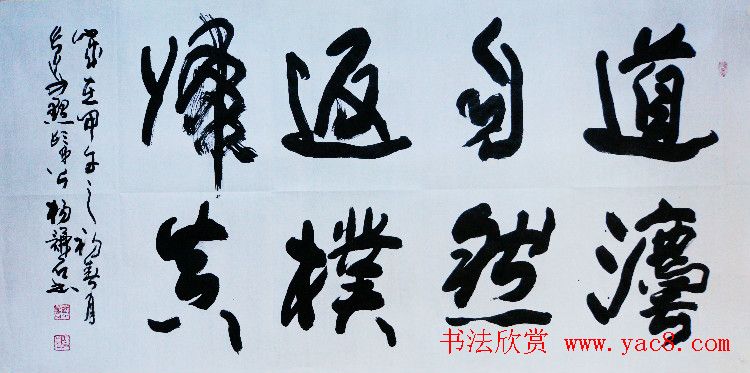 道灋
自然
返樸
歸真
歲在甲午之初春月
书法欣赏 www.yac8.com